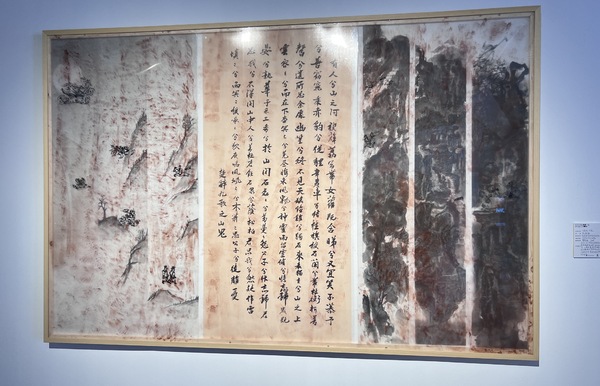 有人兮山之阿被薜荔兮帶女蘿既含睇兮又宜笑子慕予
兮善窈窕乘赤豹兮從車兮結桂旗被石蘭兮帶杜衡折芳
馨兮遺所思余處幽篁兮終不見天路險難兮獨後來表獨立兮山之上
雲容々兮而在下杳冥々兮羌晝晦東風飄兮神靈雨留靈脩兮憺忘歸歲既
晏兮孰華予采三秀兮於山間石磊々兮葛蔓々怨公子兮悵忘歸君
思我兮不得閒山中人兮芳杜若飲石泉兮蔭松柏君思我兮然疑作雷
填々兮雨冥々猨啾々兮狖夜鳴風颯々兮木蕭々思公子兮徒離憂
楚辭九歌之山鬼